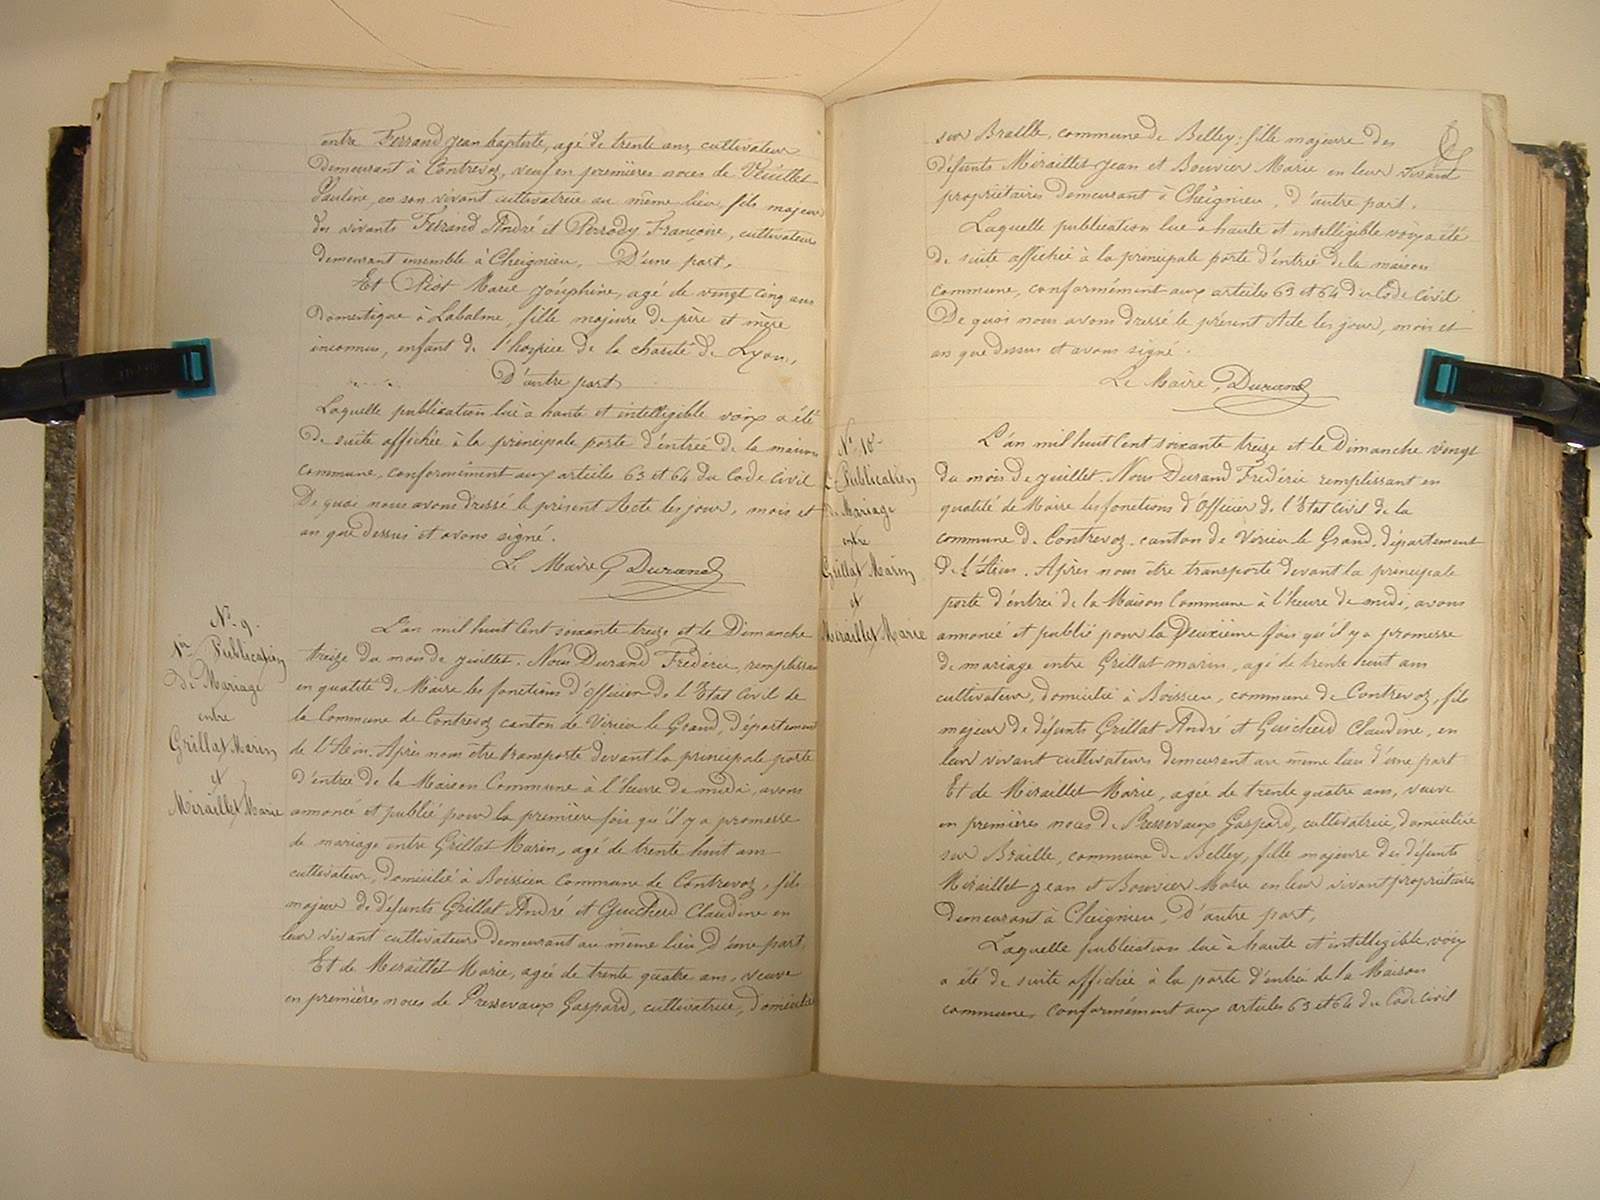 entre Ferrand Jean baptiste, agé de trente ans, cultivateur
demeurant à Contrevoz, veuf en premières noces de Veuillet
Pauline, en son vivant cultivatrice au même lieu, fils majeur
des vivants Ferrand André et Perrody Françoise, cultivateurs
demeurant ensemble à Cheignieu, D'une part.
Et Pist Marie Joséphine, agé de vingt cinq ans
Domestique à Labalme, fille majeure de père et mère
inconnus, enfant de l'hospice de la charité de Lyon,
D'autre part
Laquelle publication lue à haute et intelligible voix a été
De suite affichée à la principale porte d'entrée de la maison
commune, conformément aux articles 63 et 64 du Code Civil
De quoi nous avons dressé le présent Acte les jour, mois et
an que dessus et avons signé.
Le Maire Durand
N° 9.
1re Publication
De Mariage
entre
Grillat Marin
et
Miraillet Marie
L'an mil huit Cent soixante treize et le Dimanche
treize du mois de juillet. Nous Durand Frédéric, remplissan
en qualité de Maire les fonctions d'Officier de l'Etat Civil de
la Commune de Contrevoz canton de Virieu le Grand, Département
de l'Ain. Après nous être transporté devant la principale porte
d'entrée de la Maison Commune à l'heure de midi, avons
annoncé et publié pour la première fois qu'il y a promesse
de mariage entre Grillat Marin, agé de trente huit ans
cultivateur, domicilié à Boissieu Commune de Contrevoz, fils
majeur de défunts Grillat André et Guicherd Claudine en
leur vivant cultivateurs demeurant au même lieu D'une part
Et de Miraillet Marie, agée de trente quatre ans, veuve
en premières noces de Pressevaux Gaspard, cultivatrice, domiciliée
sur Braille, commune de Belley; fille majeure des
défunts Miraillet Jean et Bouvier Marie en leur vivant
propriétaires demeurant à Cheignieu, d'autre part.
Laquelle publication lue à haute et intelligible voix a été
de suite affichée à la principale porte d'entrée de la maison
commune, conformément aux articles 63 et 64 du Code Civil
De quoi nous avons dressé le présent Acte les jour, mois et
an que dessus et avons signé.
Le Maire, Durand
N° 10
2e Publication
de Mariage
entre
Grillat Marin
et
Miraillet Marie
L'an mil huit Cent soixante treize et le Dimanche vingt
du mois de juillet. Nous Durand Frédéric remplissant en
qualité de Maire les fonctions d'Officier de l'Etat Civil de la
commune de Contrevoz canton de Virieu le Grand département
de l'Ain. Après nous être transporté devant la principale
porte d'entrée de la Maison Commune à l'heure de midi, avons
annoncé et publié pour la Deuxième fois qu'il y a promesse
de mariage entre Grillat marin, agé de trente huit ans
cultivateur, domicilié à Boissieu, commune de Contrevoz, fils
majeur de défunts Grillat André et Guicherd Claudine, en
leur vivant cultivateurs demeurant au même lieu d'une part
Et de Miraillet Marie, agée de trente quatre ans, veuve
en premières noces de Pressevaux Gaspard, cultivatrice, domiciliée
sur Braille, commune de Belley, fille majeure des défunts
Miraillet Jean et Bouvier Marie en leur vivant propriétaires
demeurant à Cheignieu, D'autre part,
Laquelle publication lue à haute et intelligible voix
a été de suite affichée à la porte d'entrée de la Maison
commune, conformément aux articles 63 et 64 du Code Civil